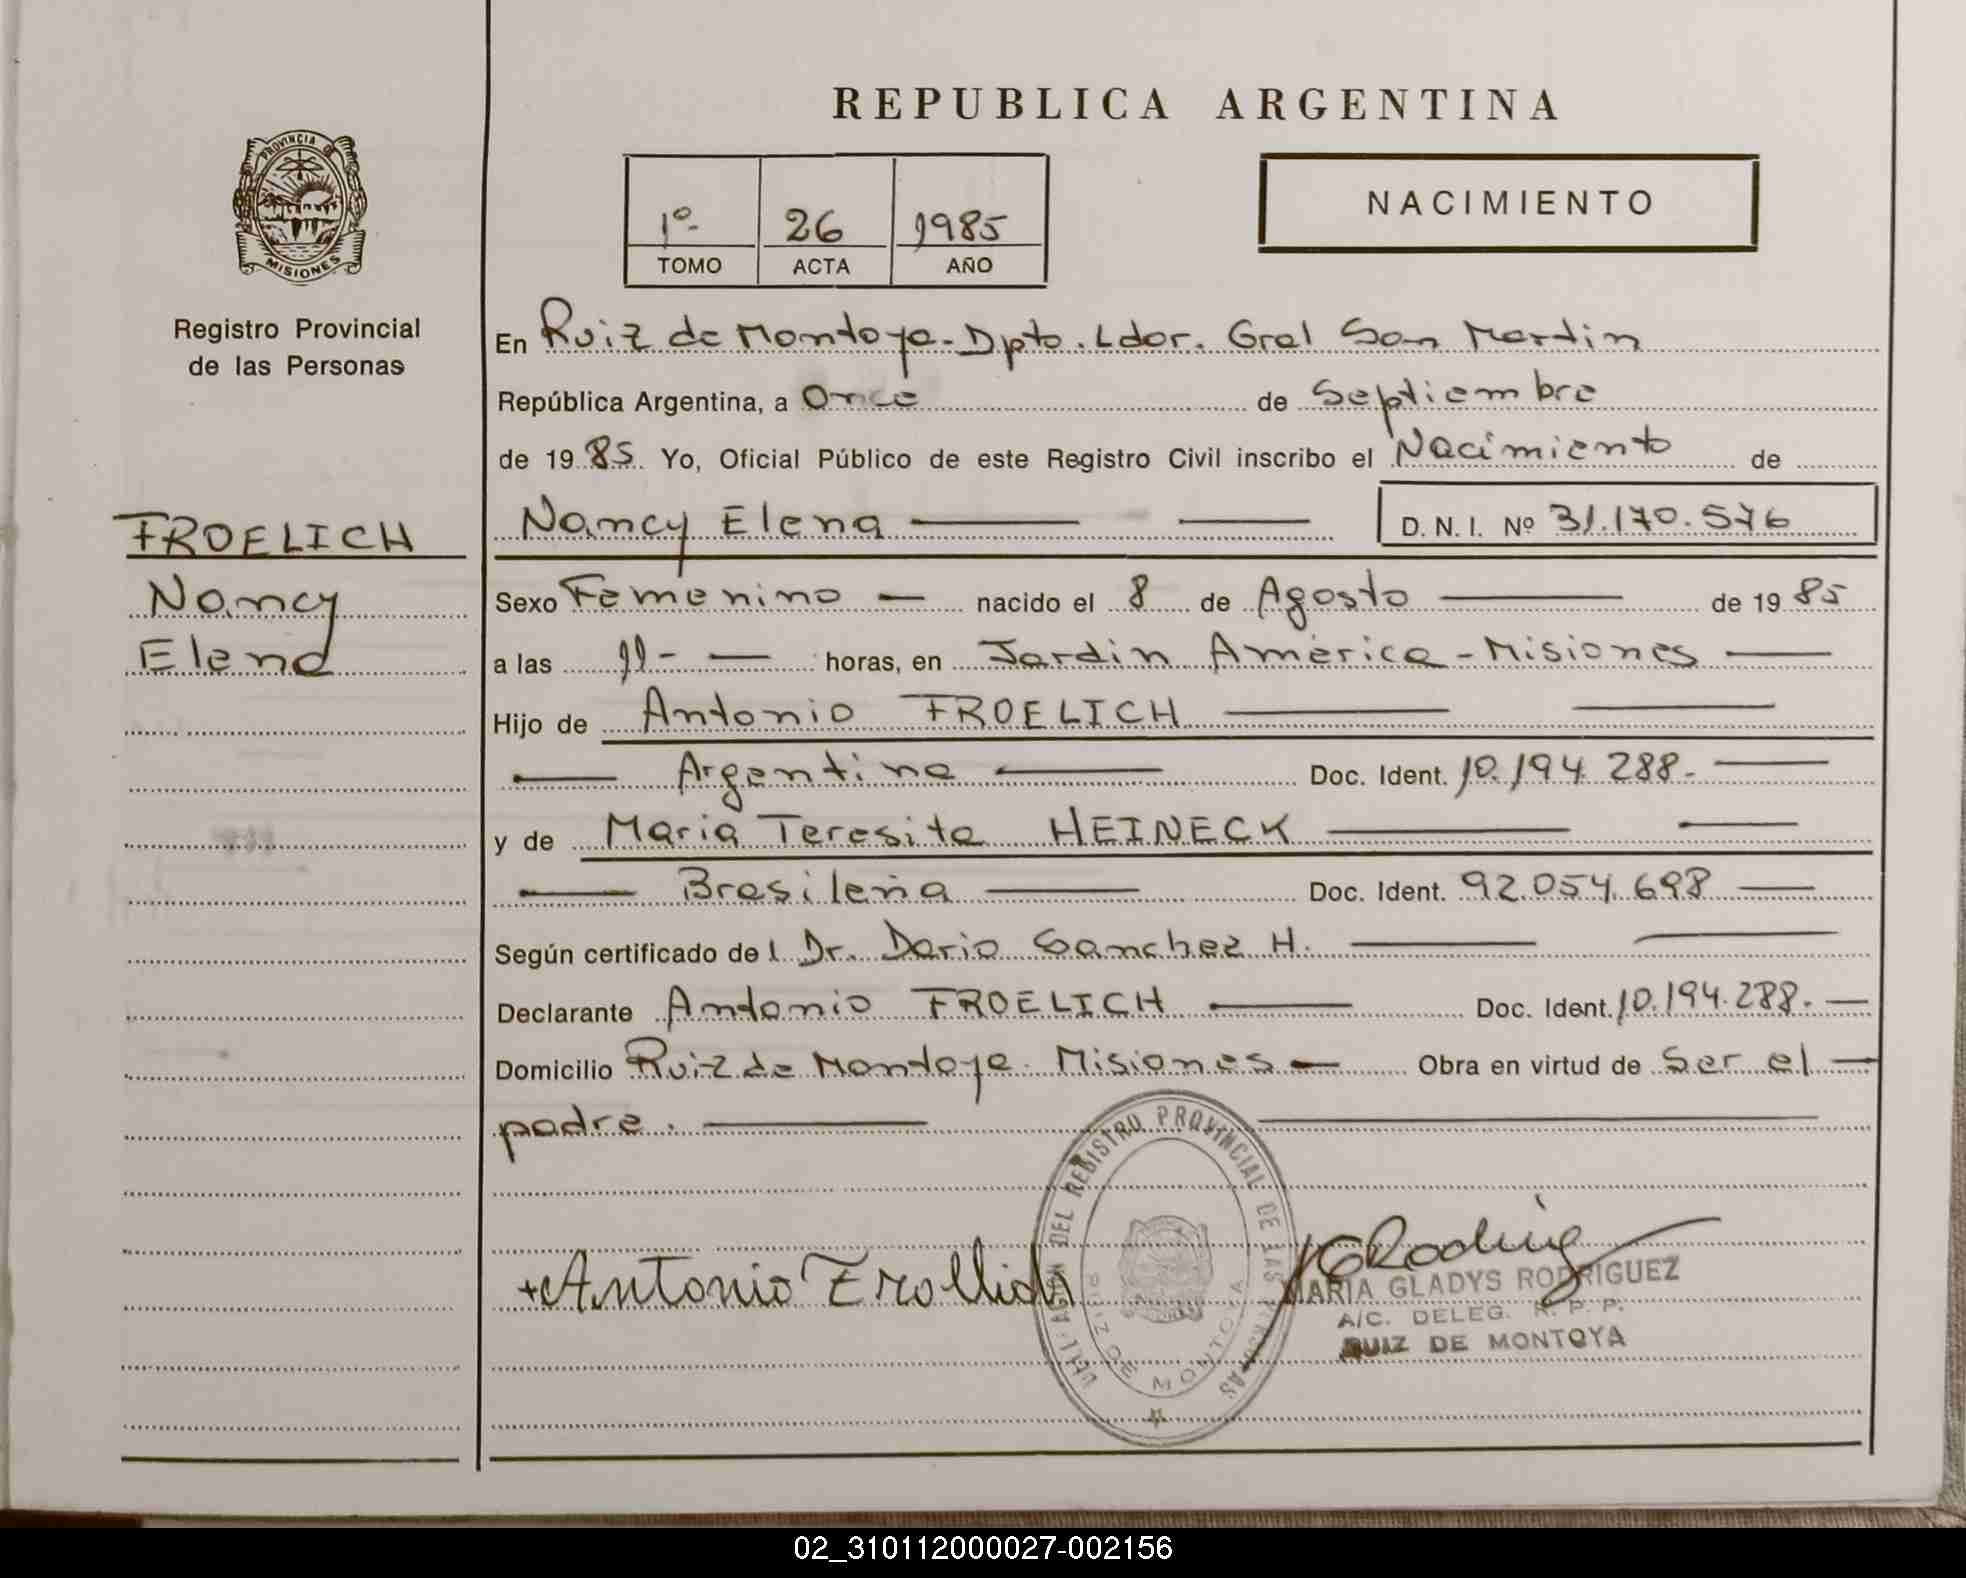 REPUBLICA ARGENTINA
PROVINCIA DE
MISIONES
Registro Provincial
de las Personas
1º 26 1985
TOMO ACTA AÑO
NACIMIENTO
En Ruiz de Montoya - Dpto. Ldor. Gral San Martin
República Argentina, a Once de Septiembre
de 1985. Yo, Oficial Público de este Registro Civil inscribo el Nacimiento de
Nancy Elena D. N. I. Nº 31.170.576
FROELICH
Nancy
Elena
Sexo Femenino nacido el 8 de Agosto de 1985
a las 11- horas, en Jardin América - Misiones
Hijo de Antonio FROELICH
Argentina Doc. Ident. 10.194.288.
y de Maria Teresita HEINECK
Brasileña Doc. Ident. 92.054.698
Según certificado del Dr. Dario Sanchez H.
Declarante Antonio FROELICH Doc. Ident. 10.194.288.
Domicilio Ruiz de Montoya - Misiones Obra en virtud de Ser el
padre.
DEL REGISTRO PROVINCIAL DE LAS PERSONAS
RUIZ DE MONTOYA
Antonio Frollich
MARIA GLADYS RODRIGUEZ
A/C. DELEG. R. P. P.
RUIZ DE MONTOYA
02_310112000027-002156